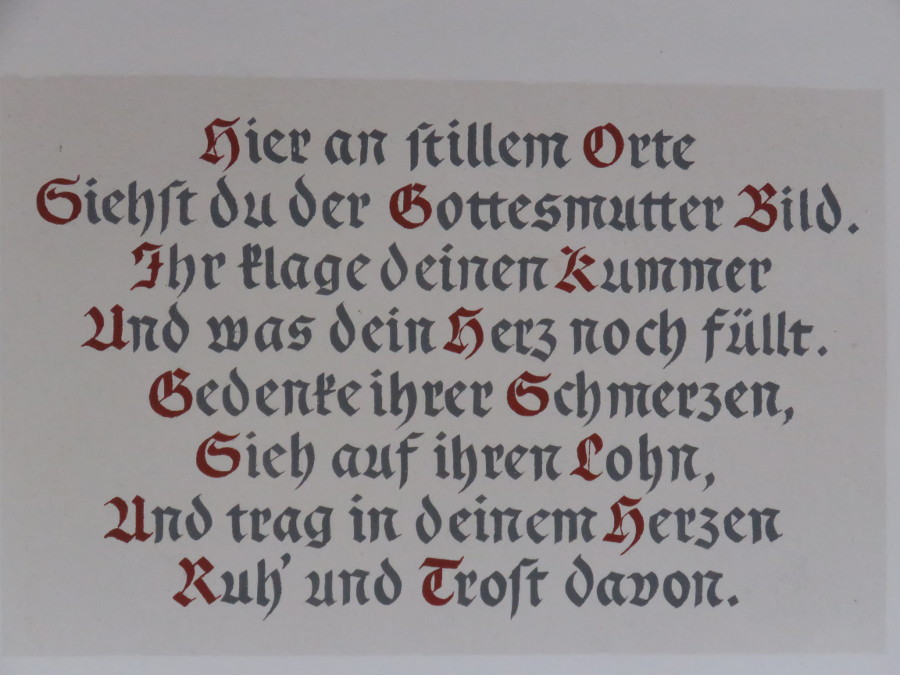 Hier an ſtillem Orte
Siehſt du der Gottesmutter Bild.
Ihr klage deinen Kummer
Und was dein Herz noch füllt.
Gedenke ihrer Schmerzen,
Sieh auf ihren Lohn,
Und trag in deinem Herzen
Ruh' und Troſt davon.